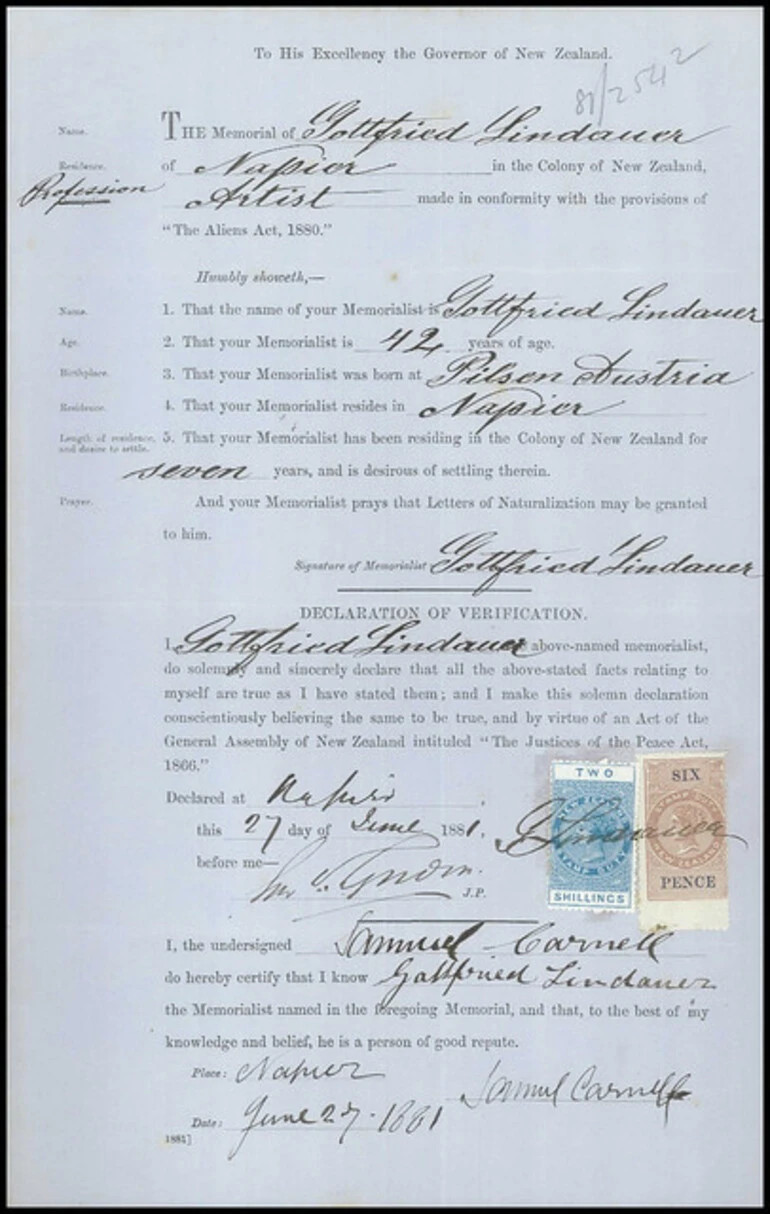 To His Excellency the Governor of New Zealand.
81/2542
Name. THE Memorial of Gottfried Lindauer
Residence. of Napier in the Colony of New Zealand,
Profession Artist made in conformity with the provisions of
"The Aliens Act, 1880."
Humbly showeth,—
Name. 1. That the name of your Memorialist is Gottfried Lindauer
Age. 2. That your Memorialist is 42 years of age.
Birthplace. 3. That your Memorialist was born at Pilsen Austria
Residence. 4. That your Memorialist resides in Napier
Length of residence, 5. That your Memorialist has been residing in the Colony of New Zealand for
and desire to settle. seven years, and is desirous of settling therein.
Prayer. And your Memorialist prays that Letters of Naturalization may be granted
to him.
Signature of Memorialist Gottfried Lindauer
DECLARATION OF VERIFICATION.
I, Gottfried Lindauer above-named memorialist,
do solemnly and sincerely declare that all the above-stated facts relating to
myself are true as I have stated them; and I make this solemn declaration
conscientiously believing the same to be true, and by virtue of an Act of the
General Assembly of New Zealand intituled "The Justices of the Peace Act,
1866."
Declared at Napier
this 27 day of June 1881, G Lindauer
before me—
J.P.
TWO
STAMP DUTY
SHILLINGS
SIX
STAMP DUTY
NEW ZEALAND
PENCE
I, the undersigned Samuel Carnell
do hereby certify that I know Gottfried Lindauer
the Memorialist named in the foregoing Memorial, and that, to the best of my
knowledge and belief, he is a person of good repute.
Place: Napier
Samuel Carnell
Date: June 27. 1881
1881]